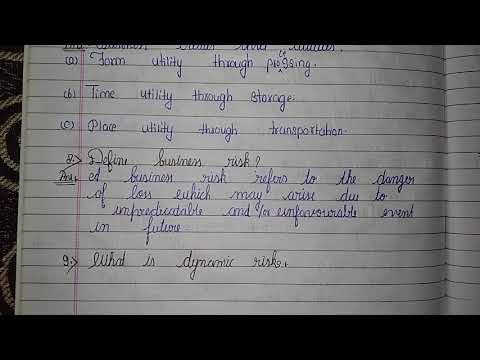 (a) Form utility through processing.
(b) Time utility through storage.
(c) Place utility through transportation.
8.> Define business risk?
Ans. business risk refers to the danger
of loss which may arise due to
unpredicatable and/or unfavourable event
in future.
9.> What is dynamic risk.